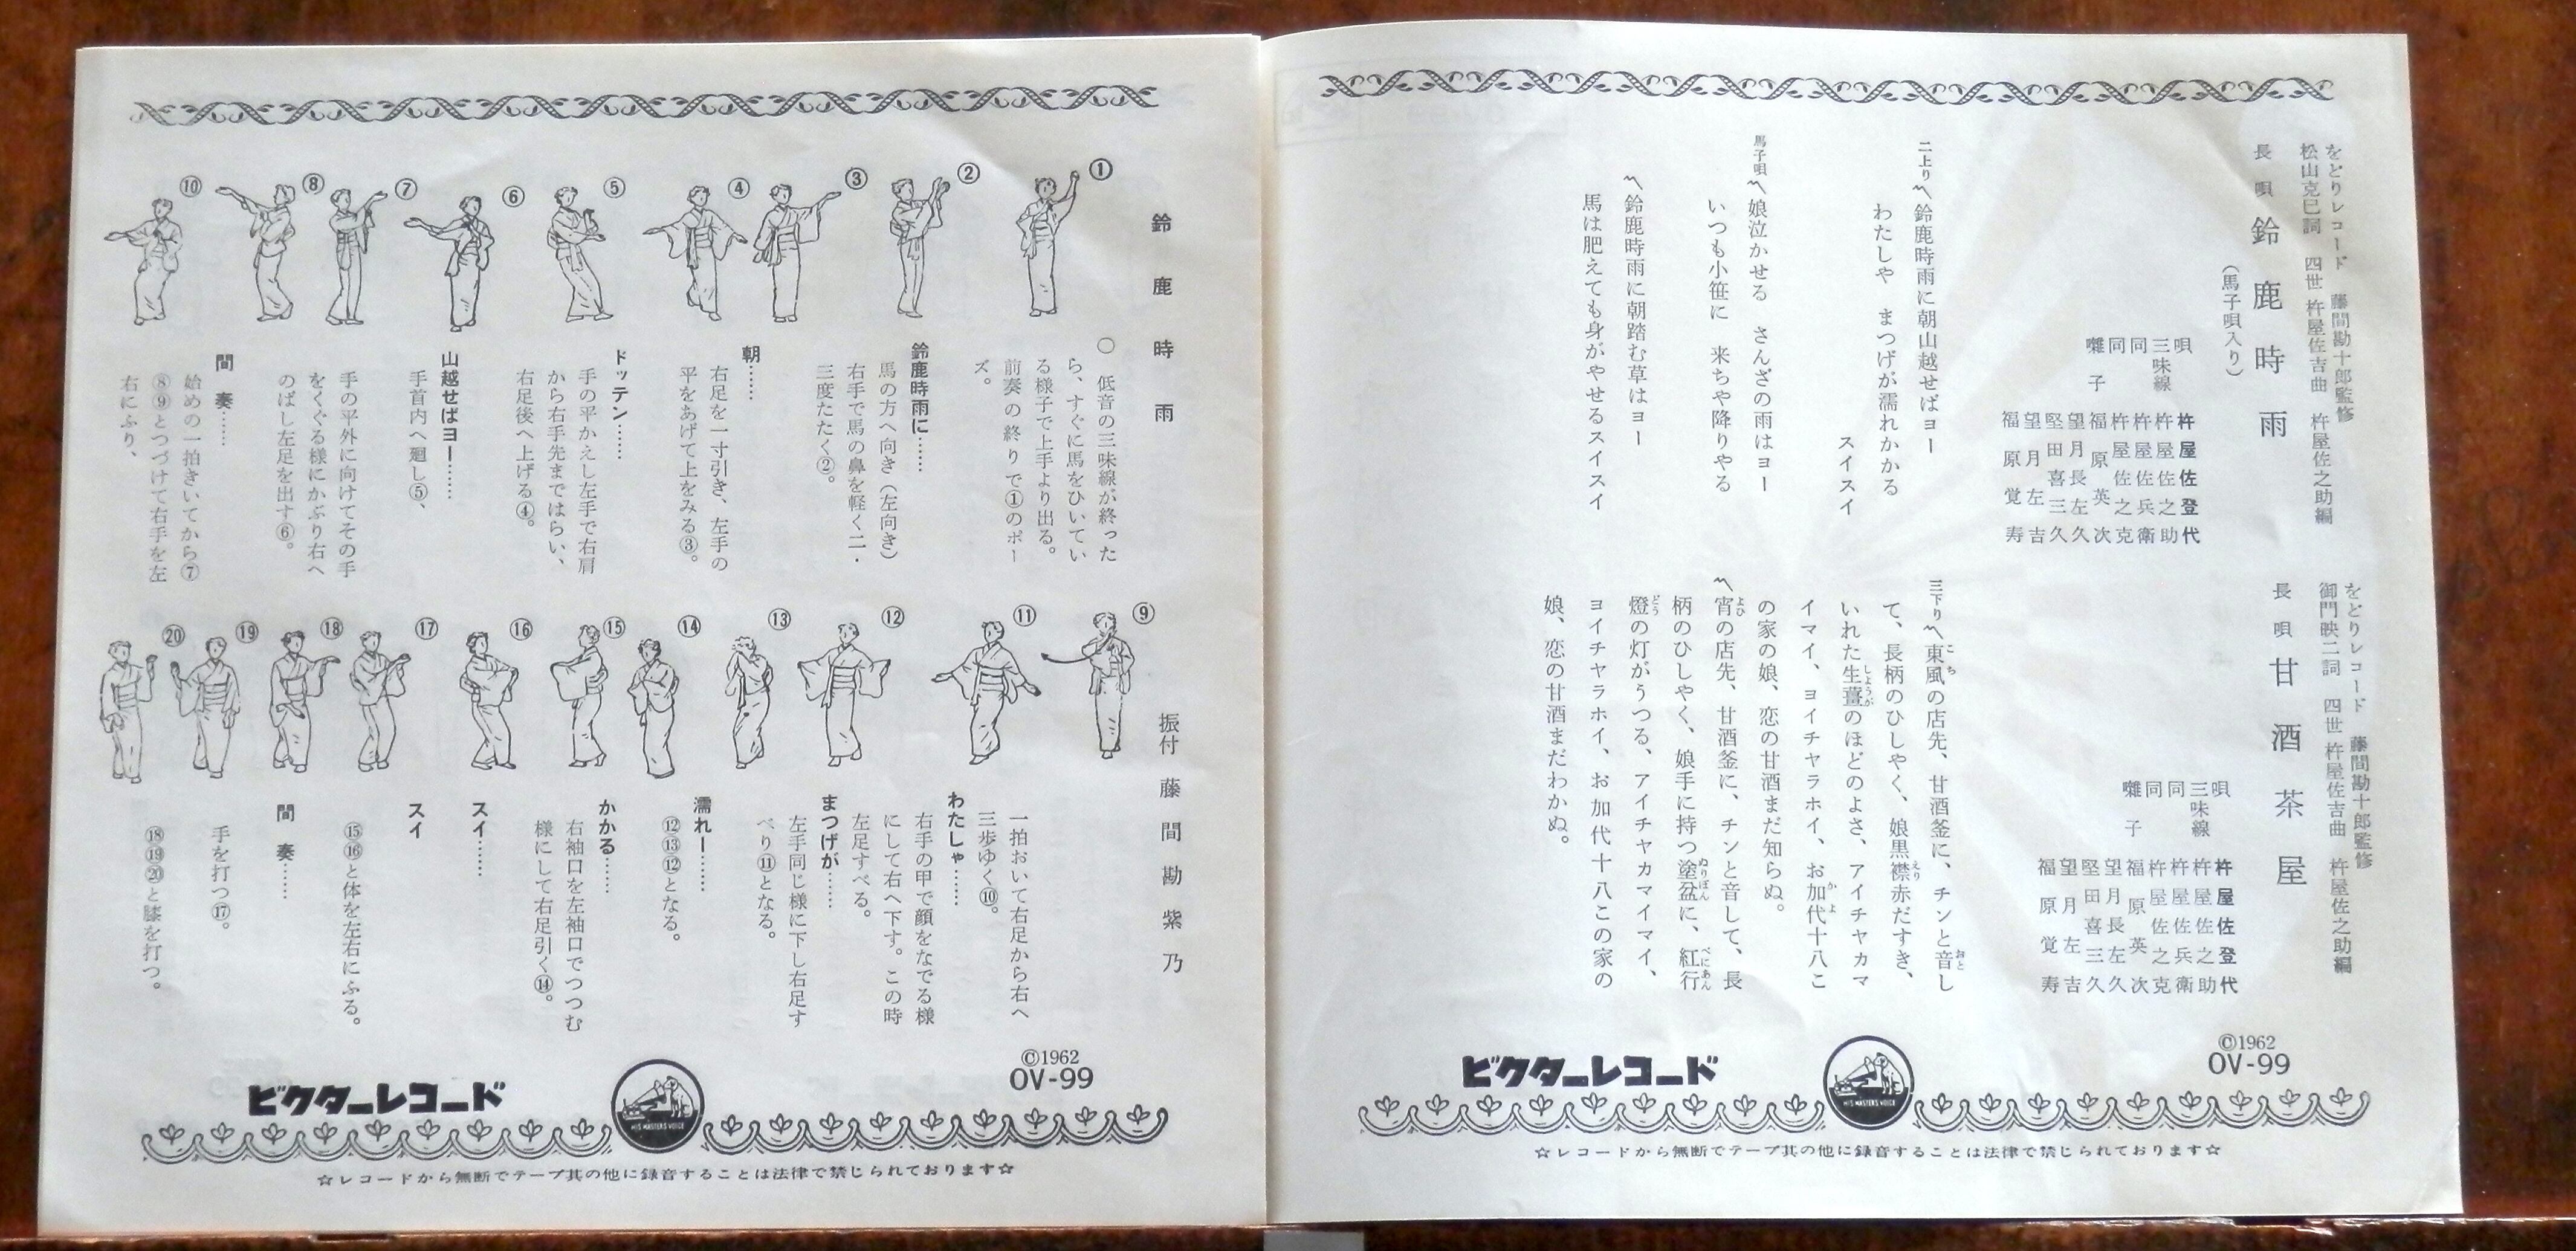 をどりレコード　藤間勘十郎監修
松山克巳詞　四世 杵屋佐吉曲　杵屋佐之助編
長唄　鈴鹿時雨
（馬子唄入り）
唄　杵屋佐登代
三味線　杵屋佐之助
同　杵屋佐兵衛
同　杵屋佐之克
囃子　福原英次
望月長左久
堅田喜三久
望月左吉
福原覚寿
二上り〽鈴鹿時雨に朝山越せばヨー
わたしや　まつげが濡れかかる
スイスイ
馬子唄〽娘泣かせる　さんざの雨はヨー
いつも小笹に　来ちや降りやる
〽鈴鹿時雨に朝踏む草はヨー
馬は肥えても身がやせるスイスイ
をどりレコード　藤間勘十郎監修
御門映二詞　四世 杵屋佐吉曲　杵屋佐之助編
長唄　甘酒茶屋
唄　杵屋佐登代
三味線　杵屋佐之助
同　杵屋佐兵衛
同　杵屋佐之克
囃子　福原英次
望月長左久
堅田喜三久
望月左吉
福原覚寿
三下り〽東風の店先、甘酒釜に、チンと音し
て、長柄のひしやく、娘黒襟赤だすき、
いれた生薑のほどのよさ、アイチヤカマ
イマイ、ヨイチヤラホイ、お加代十八こ
の家の娘、恋の甘酒まだ知らぬ。
〽宵の店先、甘酒釜に、チンと音して、長
柄のひしやく、娘手に持つ塗盆に、紅行
燈の灯がうつる、アイチヤカマイマイ、
ヨイチヤラホイ、お加代十八この家の
娘、恋の甘酒まだわかぬ。
©1962
OV-99
ビクターレコード
HIS MASTERS VOICE
☆レコードから無断でテープ其の他に録音することは法律で禁じられております☆
鈴鹿時雨
振付　藤間勘紫乃
①
②
③
④
⑤
⑥
⑦
⑧
⑩
○　低音の三味線が終った
ら、すぐに馬をひいてい
る様子で上手より出る。
前奏の終りで①のポー
ズ。
鈴鹿時雨に……
馬の方へ向き（左向き）
右手で馬の鼻を軽く二・
三度たたく②。
朝……
右足を一寸引き、左手の
平をあげて上をみる③。
ドッテン……
手の平かえし左手で右肩
から右手先まではらい、
右足後へ上げる④。
山越せばヨー……
手首内へ廻し⑤、
手の平外に向けてその手
をくぐる様にかぶり右へ
のばし左足を出す⑥。
間　奏……
始めの一拍きいてから⑦
⑧⑨とつづけて右手を左
右にふり、
⑨
⑪
⑫
⑬
⑭
⑮
⑯
⑰
⑱
⑲
⑳
一拍おいて右足から右へ
三歩ゆく⑩。
わたしゃ……
右手の甲で顔をなでる様
にして右へ下す。この時
左足すべる。
まつげが……
左手同じ様に下し右足す
べり⑪となる。
濡れー……
⑫⑬⑫となる。
かかる……
右袖口を左袖口でつつむ
様にして右足引く⑭。
スイ……
⑮⑯と体を左右にふる。
スイ
手を打つ⑰。
間　奏……
⑱⑲⑳と膝を打つ。
©1962
OV-99
ビクターレコード
HIS MASTERS VOICE
☆レコードから無断でテープ其の他に録音することは法律で禁じられております☆